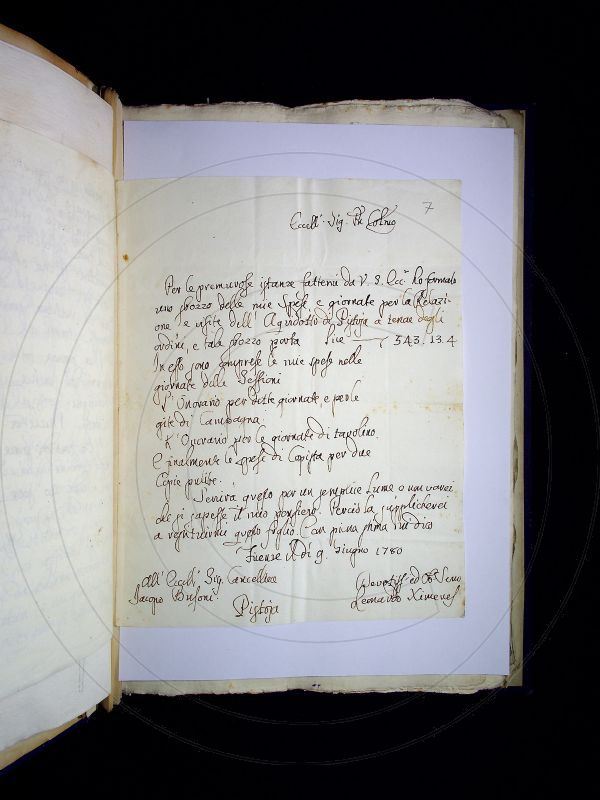 7
Eccell: Sig. Pñ Colmo
Per le premurose istanze fattemi da V. S. Ecc: ho formato
uno sbozzo delle mie spese e giornate per la Relazi-
one, le visite dell' Aquidotto di Pistoja a tenore degli
ordini, e tale sbozzo porta lire 543. 13. 4
In esso sono comprese le mie spese nelle
giornate delle Sessioni
L' Onorario per dette giornate e per le
gite di Campagna.
L' Onorario per le giornate di tavolino.
E finalmente le spese di Copista per due
Copie pulite.
Servirà questo per un semplice lume e non vorrei
che si sapesse il mio pensiero. Perciò la supplicherei
a restituirmi questo foglio. Con piena stima mi dico
Firenze li di 9. Giugno 1780
All' Eccell: Sig. Cancelliere
Jacopo Busoni.
Pistoja
Devotiss ed Serv
Leonardo Ximenes